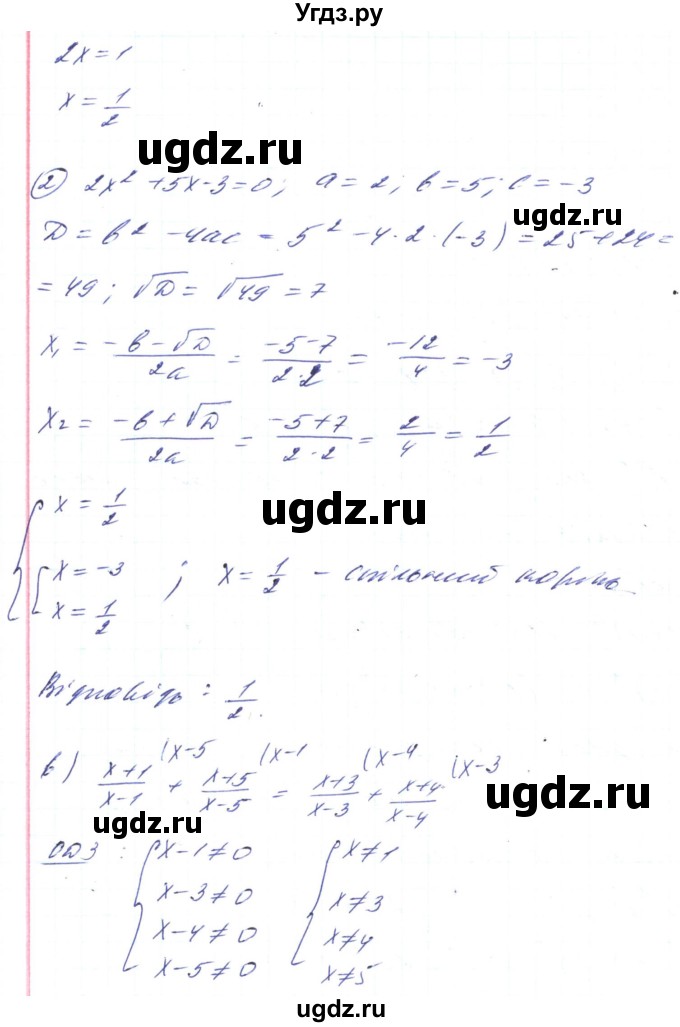 Угдз.ру
2x = 1
x = 1/2
ugdz.ru
② 2x² + 5x - 3 = 0; a = 2; b = 5; c = -3
ugdz.ru
D = b² - 4ac = 5² - 4·2·(-3) = 25 + 24 =
= 49; √D = √49 = 7
x₁ = (-b - √D)/2a = (-5-7)/(2·2) = -12/4 = -3
ugdz.ru
x₂ = (-b + √D)/2a = (-5+7)/(2·2) = 2/4 = 1/2
ugdz.ru
{ x = 1/2
[ x = -3
x = 1/2 ; x = 1/2 - спільний корінь
ugdz.ru
Відповідь: 1/2.
в) (x+1)/(x-1) (x-5 + (x+5)/(x-5) (x-1 = (x+3)/(x-3) (x-4 + (x+4)/(x-4) (x-3
ugdz.ru
ugdz.ru
ОДЗ: { x - 1 ≠ 0 { x ≠ 1
x - 3 ≠ 0 x ≠ 3
x - 4 ≠ 0 x ≠ 4
x - 5 ≠ 0 x ≠ 5
ugdz.ru
ugdz.ru